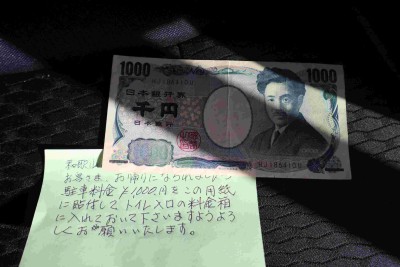 1000 1000
日本銀行券
千円
日本銀行
お帰りに
駐車料金¥1,000円をこの用紙
に貼付して トイレ入口の料金箱
に入れておいて下さいますようよろ
しくお願いいたします。